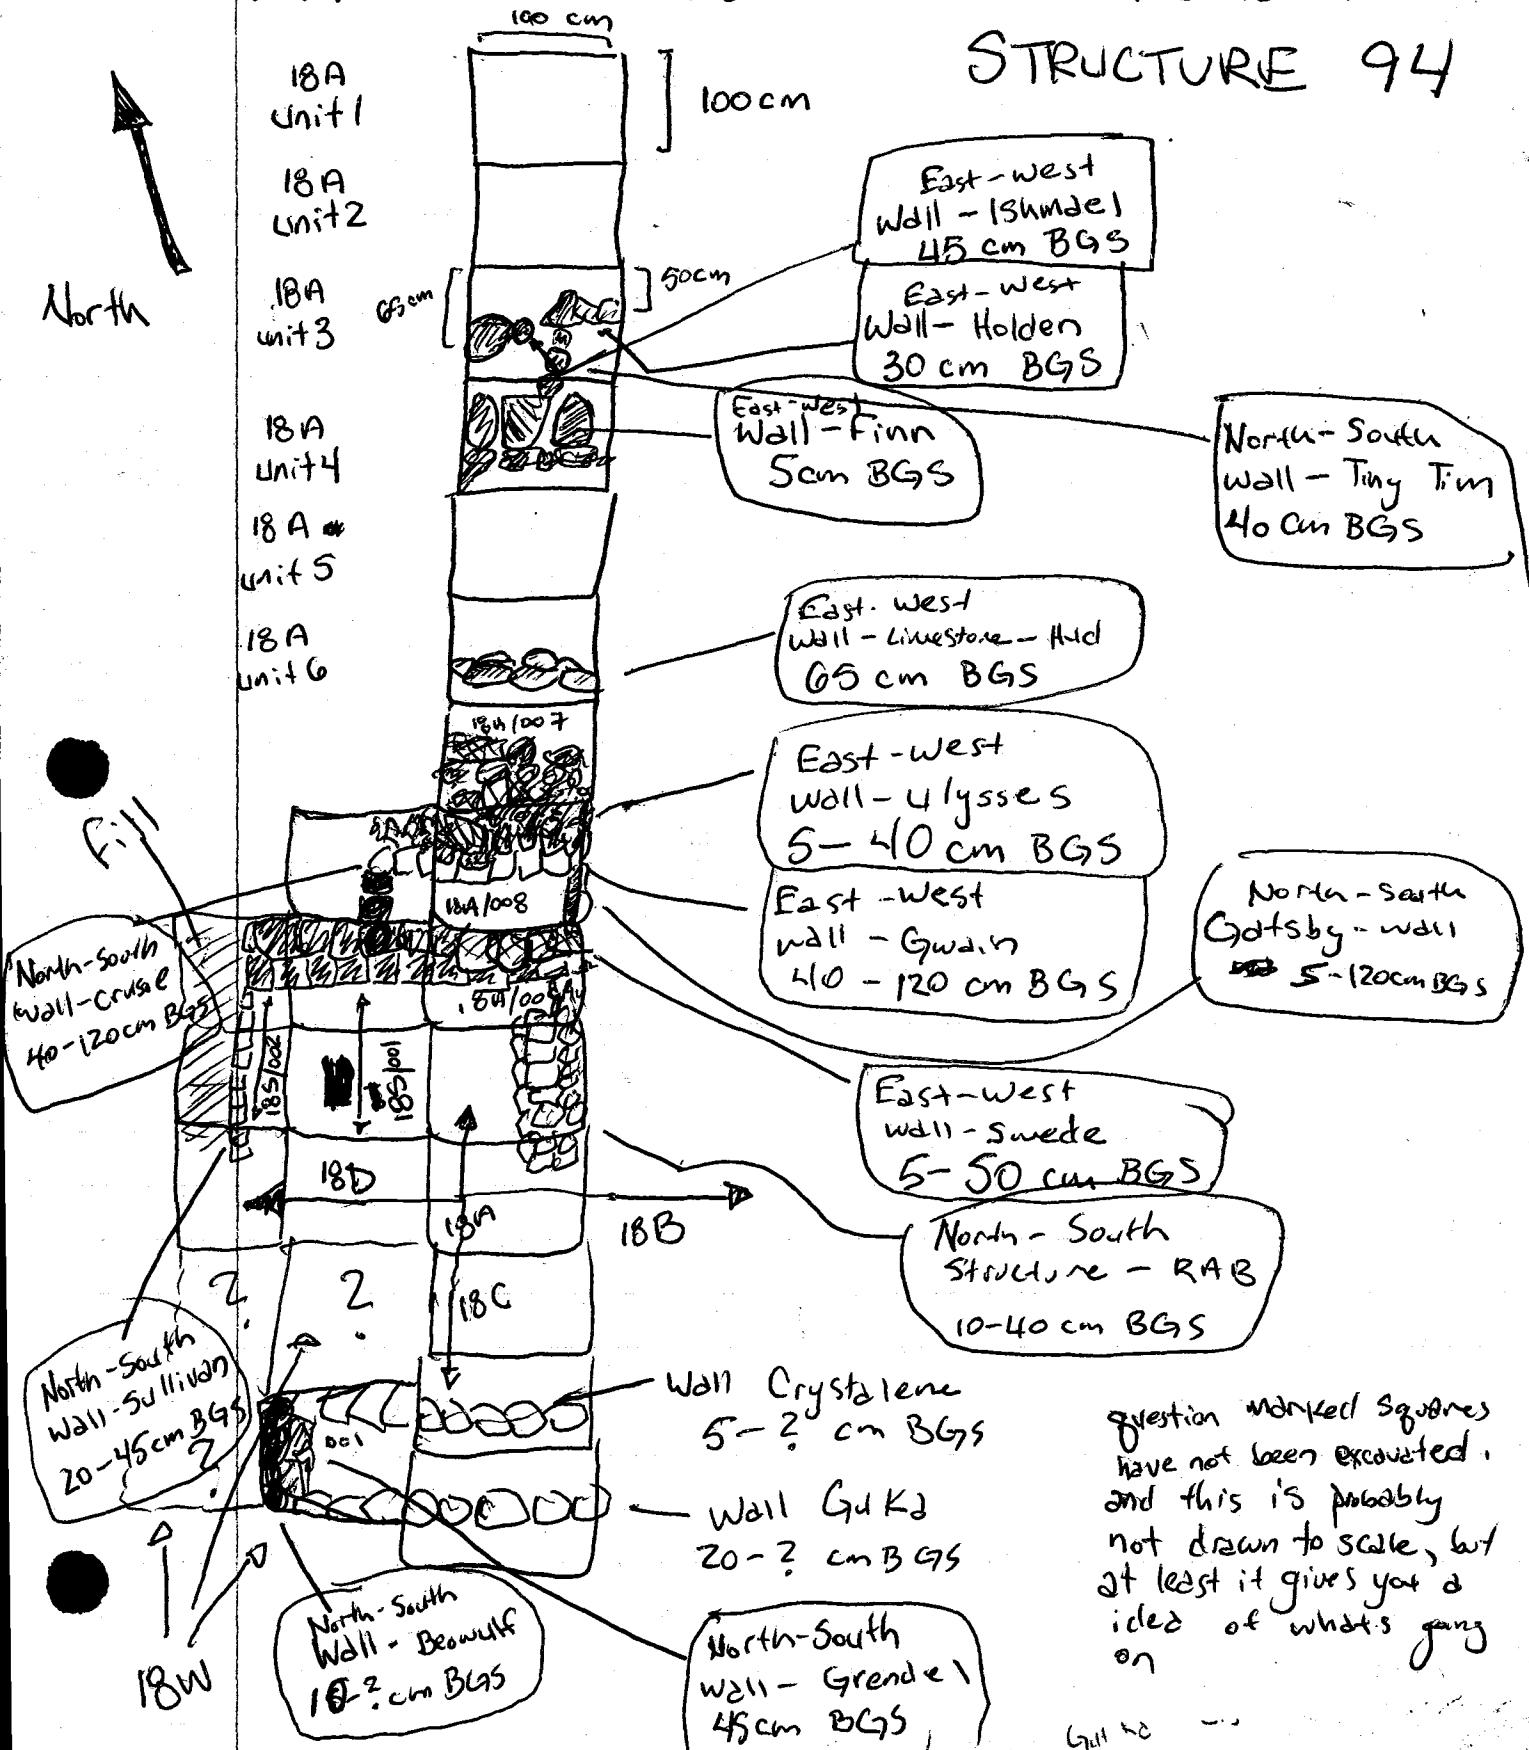 100 cm
STRUCTURE 94
18A
unit 1
100 cm
18A
unit 2
East-west
Wall - Ishmael
45 cm BGS
North
18A
unit 3
65 cm
50cm
East-west
Wall - Holden
30 cm BGS
18A
unit 4
East-west
Wall - Finn
5cm BGS
North-South
wall - Tiny Tim
40 cm BGS
18A
unit 5
18A
unit 6
East-west
wall - Limestone - Hud
65 cm BGS
18A/007
East-west
wall - Ulysses
5-40 cm BGS
Fill
18A/008
East-west
wall - Gwain
40-120 cm BGS
North-South
Gatsby-wall
5-120cm BGS
North-South
wall-Crusoe
40-120cm BGS
18A/009
18S/002
18S/001
East-west
wall - Swede
5-50 cm BGS
18D
18A
18B
North-South
Structure - RAB
10-40 cm BGS
?
?
18C
North-South
Wall-Sullivan
20-45cm BGS
?
001
Wall Crystalene
5-? cm BGS
Wall Guka
20-? cm BGS
question marked squares
have not been excavated.
and this is probably
not drawn to scale, but
at least it gives you a
idea of what's going
on
18W
North-South
Wall - Beowulf
10-? cm BGS
North-South
wall - Grendel
45cm BGS